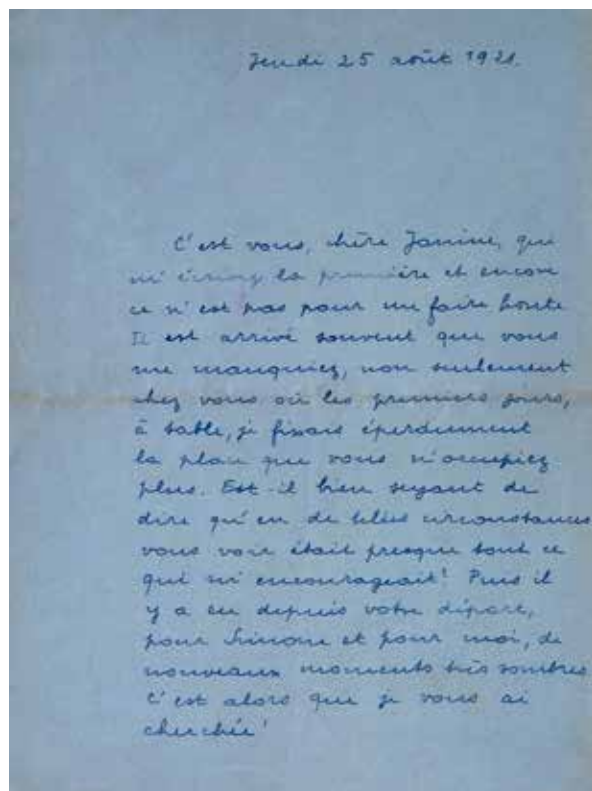 Jeudi 25 août 1921.
C'est vous, chère Janine, qui
m'écrivez la première et encore
ce n'est pas pour me faire honte
Il est arrivé souvent que vous
me manquiez, non seulement
chez vous où les premiers jours,
à table, je fixais éperdument
la place que vous n'occupiez
plus. Est-il bien seyant de
dire qu'en de telles circonstances
vous voir était presque tout ce
qui m'encourageait! Puis il
y a eu depuis votre départ,
pour Simone et pour moi, de
nouveaux moments très sombres
C'est alors que je vous ai
cherchée!